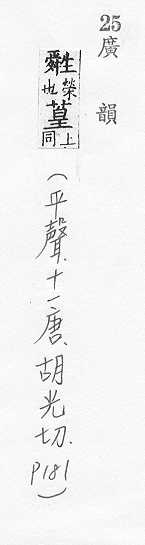 25 廣韻
䑞榮也葟上同
(平聲.十一唐、胡光切.P181)